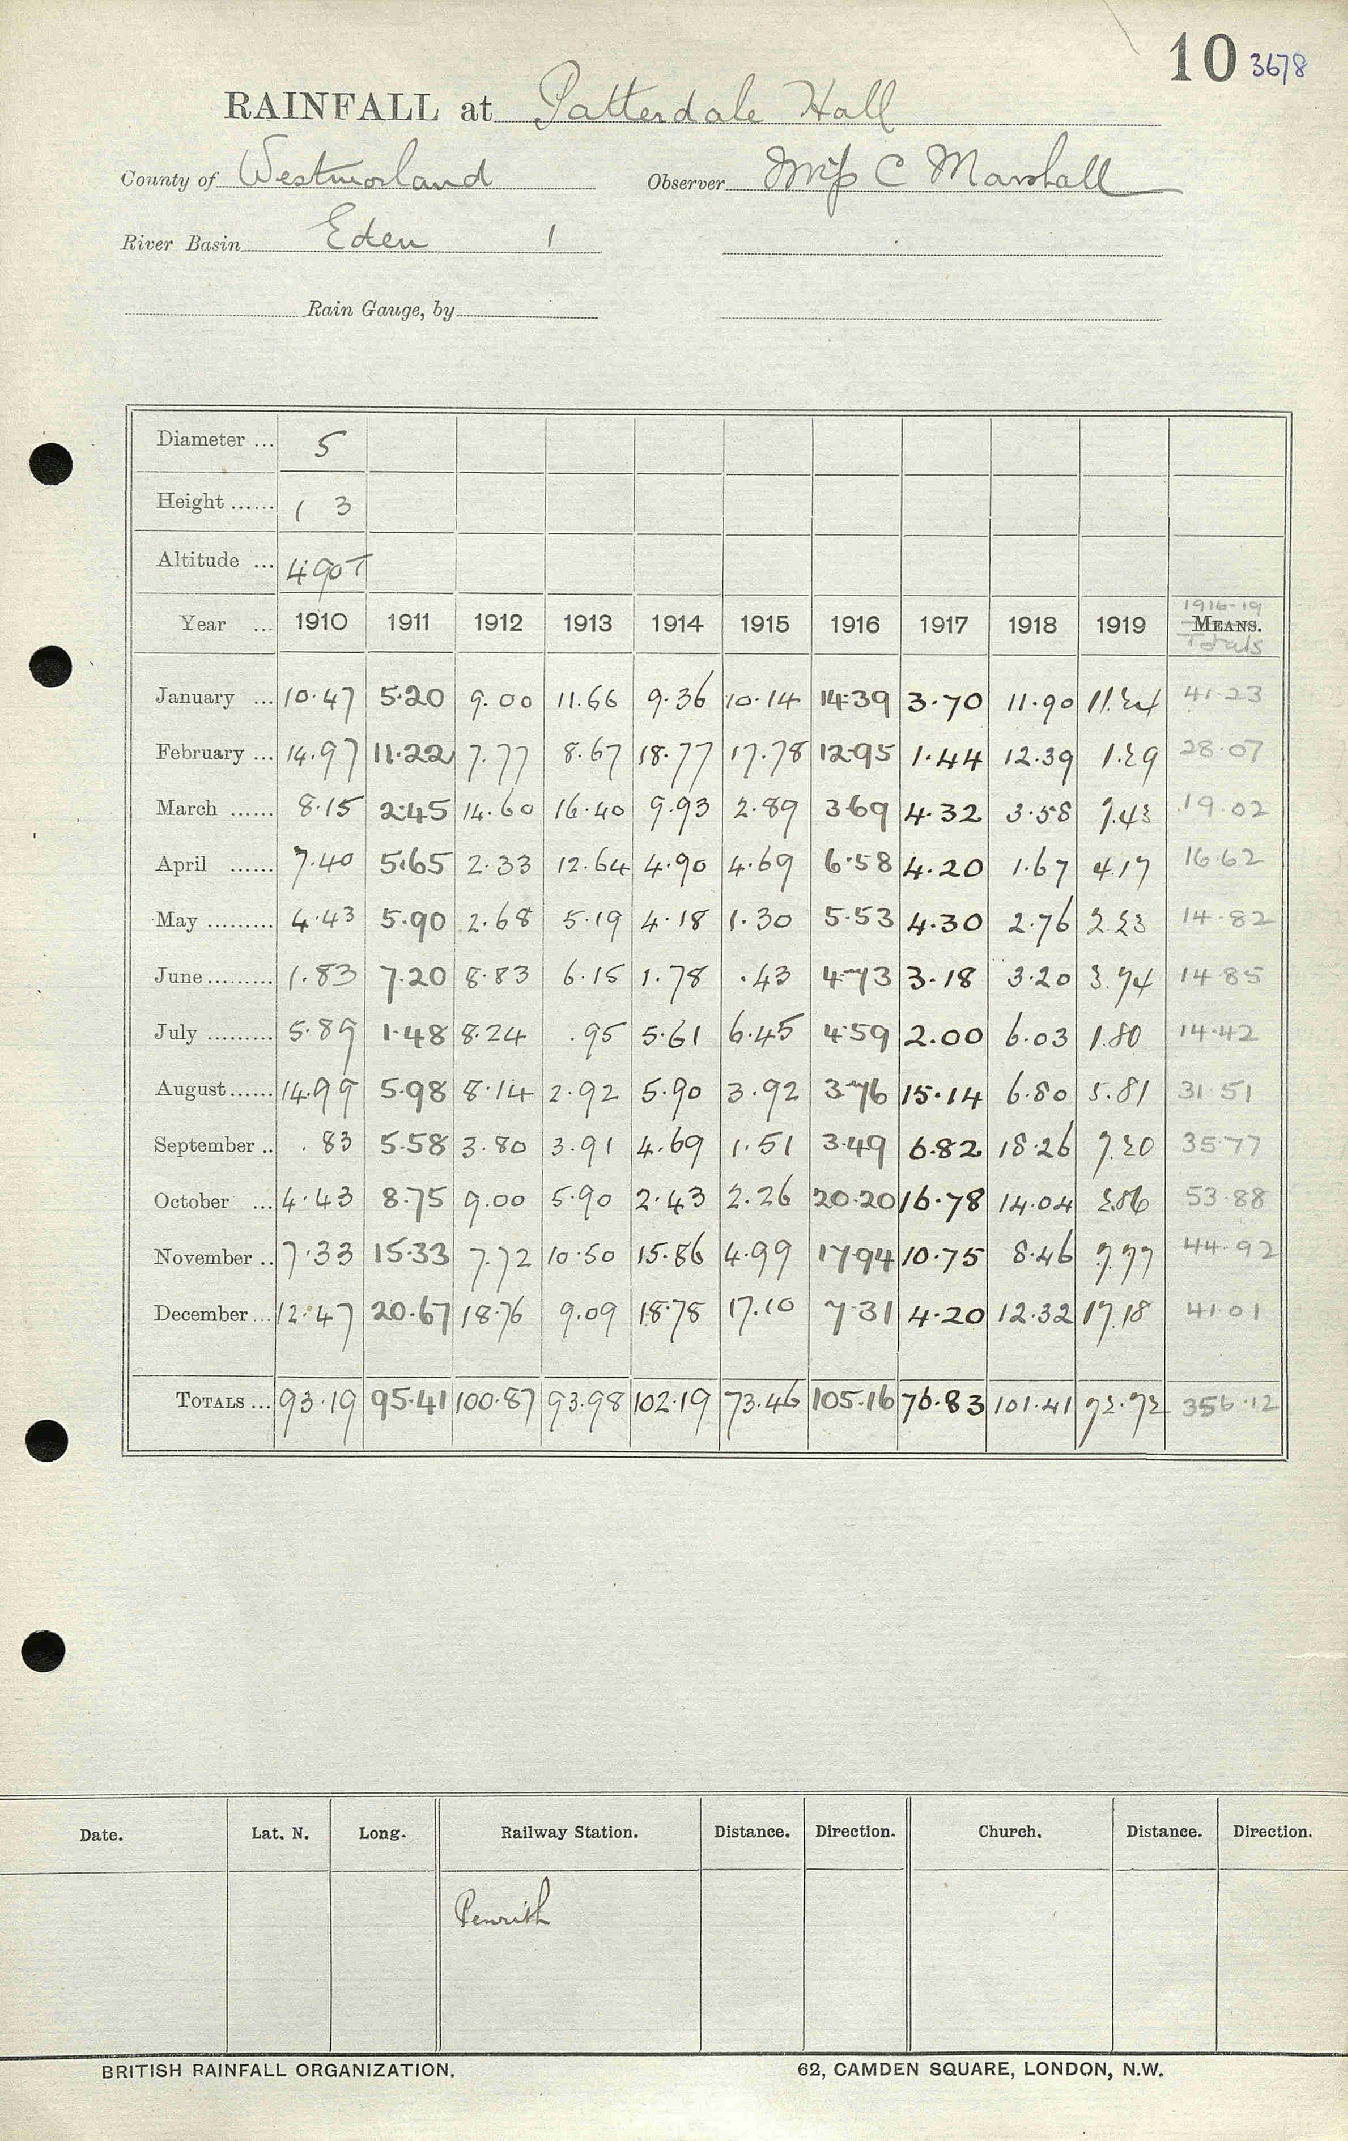 10 3678
RAINFALL at Patterdale Hall
County of Westmorland Observer Miss C Marshall
River Basin Eden 1
Rain Gauge, by
Diameter ... 5
Height ...... 1 3
Altitude ... 490T
1916-19
Year ... 1910 1911 1912 1913 1914 1915 1916 1917 1918 1919 MEANS.
Totals
January ... 10.47 5.20 9.00 11.66 9.36 10.14 14.39 3.70 11.90 11.24 41.23
February ... 14.97 11.22 7.77 8.67 18.77 17.78 12.95 1.44 12.39 1.29 28.07
March ...... 8.15 2.45 14.60 16.40 9.93 2.89 3.69 4.32 3.58 7.43 19.02
April ...... 7.40 5.65 2.33 12.64 4.90 4.69 6.58 4.20 1.67 4.17 16.62
May ......... 4.43 5.90 2.68 5.19 4.18 1.30 5.53 4.30 2.76 2.23 14.82
June ......... 1.83 7.20 8.83 6.15 1.78 .43 4.73 3.18 3.20 3.74 14.85
July ......... 5.89 1.48 8.24 .95 5.61 6.45 4.59 2.00 6.03 1.80 14.42
August ...... 14.99 5.98 8.14 2.92 5.90 3.92 3.76 15.14 6.80 5.81 31.51
September .. .83 5.58 3.80 3.91 4.69 1.51 3.49 6.82 18.26 7.20 35.77
October ... 4.43 8.75 9.00 5.90 2.43 2.26 20.20 16.78 14.04 2.86 53.88
November .. 7.33 15.33 7.72 10.50 15.86 4.99 17.94 10.75 8.46 7.77 44.92
December ... 12.47 20.67 18.76 9.09 18.78 17.10 7.31 4.20 12.32 17.18 41.01
TOTALS ... 93.19 95.41 100.87 93.98 102.19 73.46 105.16 76.83 101.41 72.72 356.12
Date. Lat. N. Long. Railway Station. Distance. Direction. Church. Distance. Direction.
Penrith
BRITISH RAINFALL ORGANIZATION. 62, CAMDEN SQUARE, LONDON, N.W.